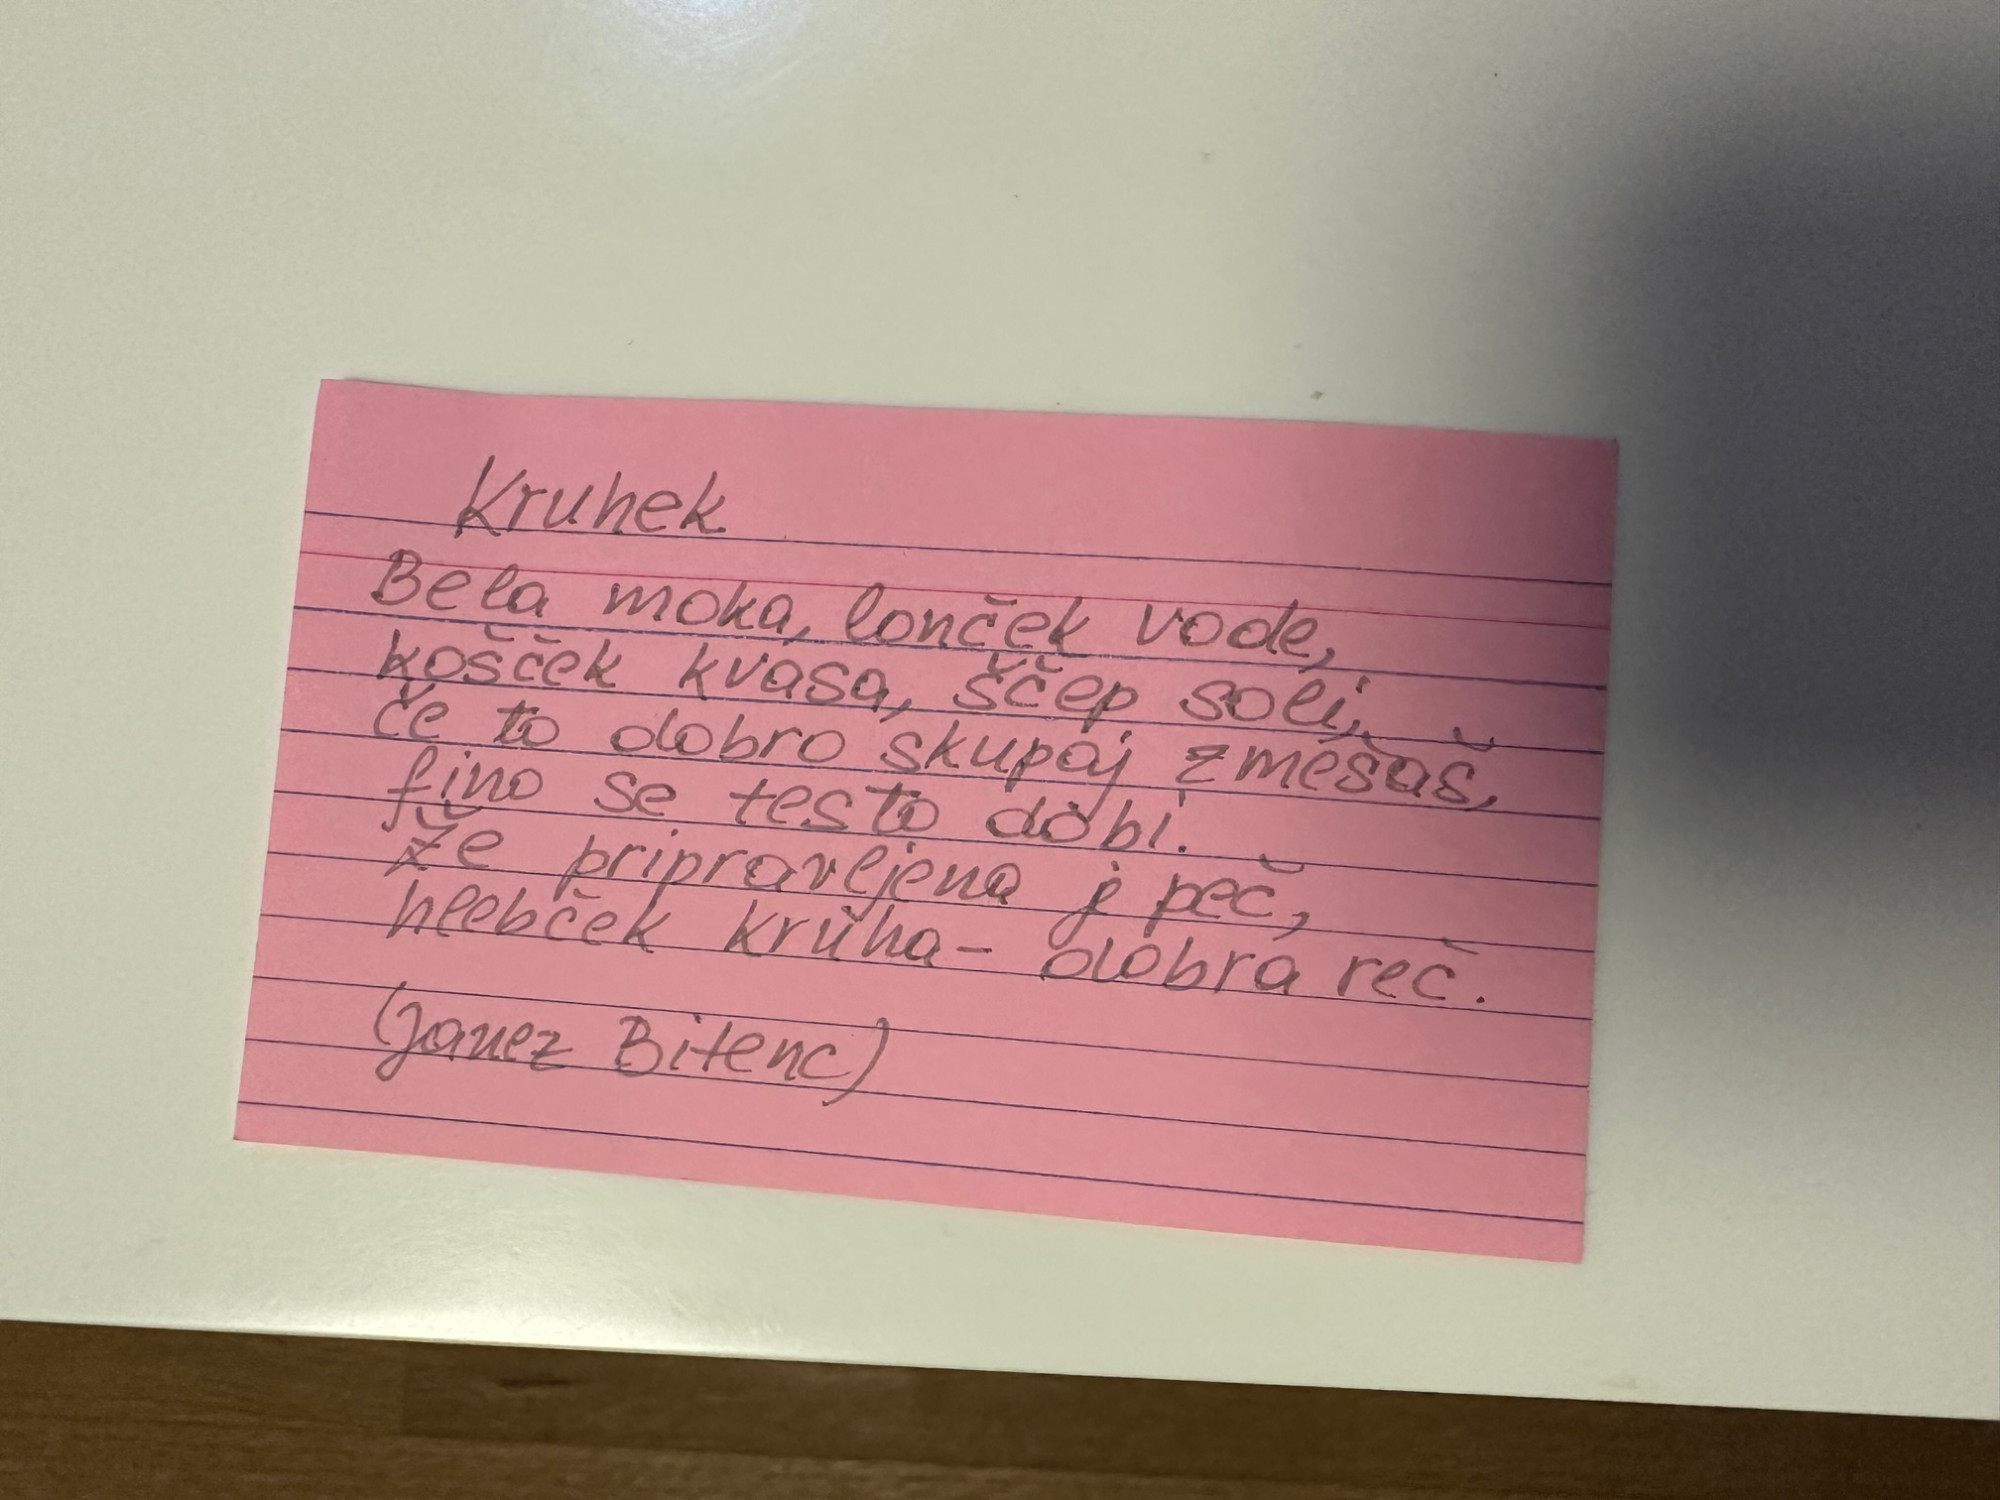 Kruhek
Bela moka, lonček vode,
košček kvasa, ščep soli,
če to dobro skupaj zmešaš,
fino se testo dobi.
Že pripravljena je peč,
hlebček kruha - dobra reč.
(Janez Bitenc)